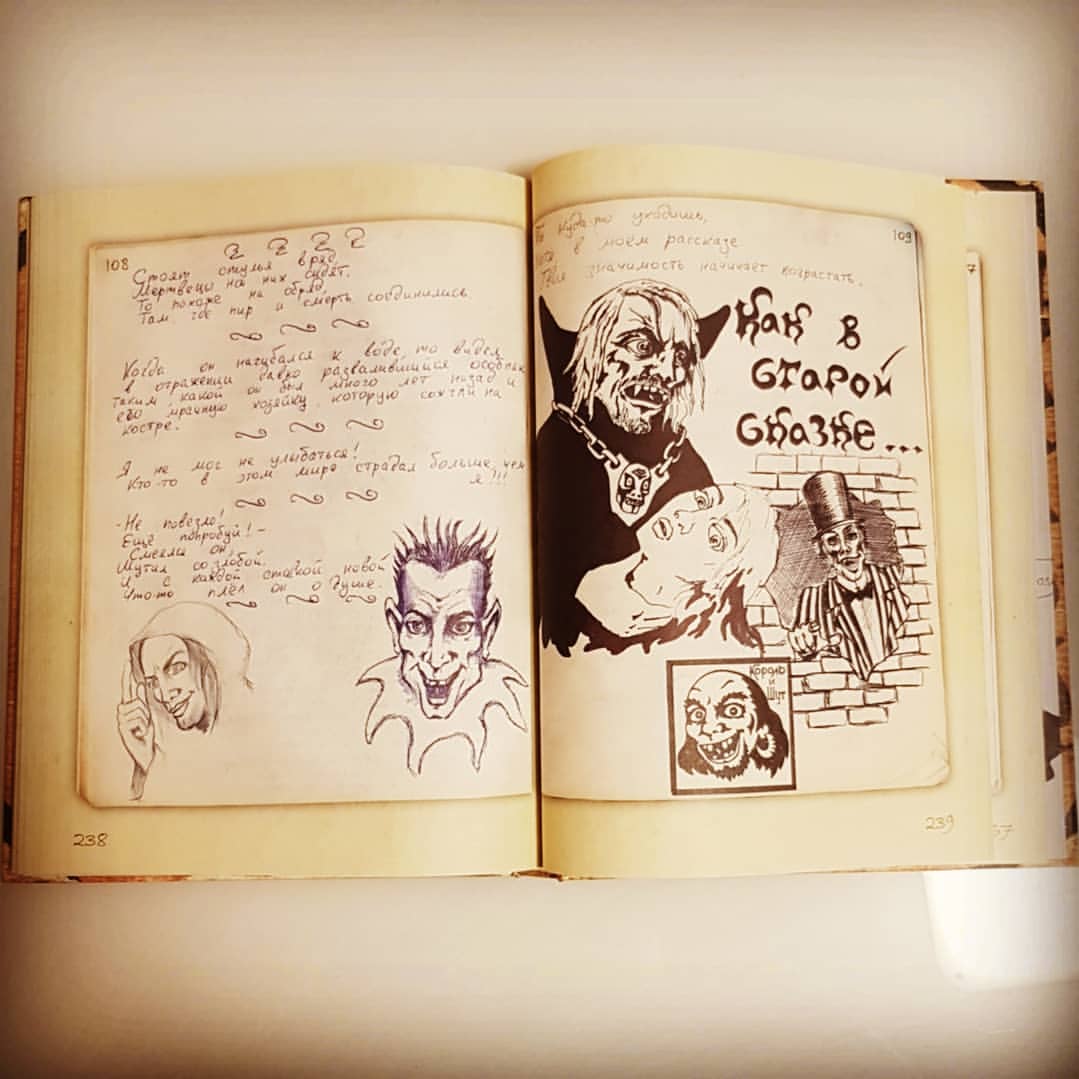 108
Стоят стулья в ряд,
Мертвецы на них сидят.
То похоже на обряд,
Там, где пир и смерть соединились.
Когда он нагибался к воде, то видел
в отражении давно развалившийся особняк
таким, какой он был много лет назад и
его мрачную хозяйку, которую сожгли на
костре.
Я не мог не улыбаться!
Кто-то в этом мире страдал больше, чем
я!!!
- Не повезло!
Ещё попробуй! -
Смеялся он,
Шутил со злобой.
И с каждой ставкой новой
Что-то плёл он о душе.
238
Ты куда-то уходишь,
в моём рассказе
Твоя значимость начинает возрастать.
109
Как в
старой
сказке...
Король
и
Шут
239